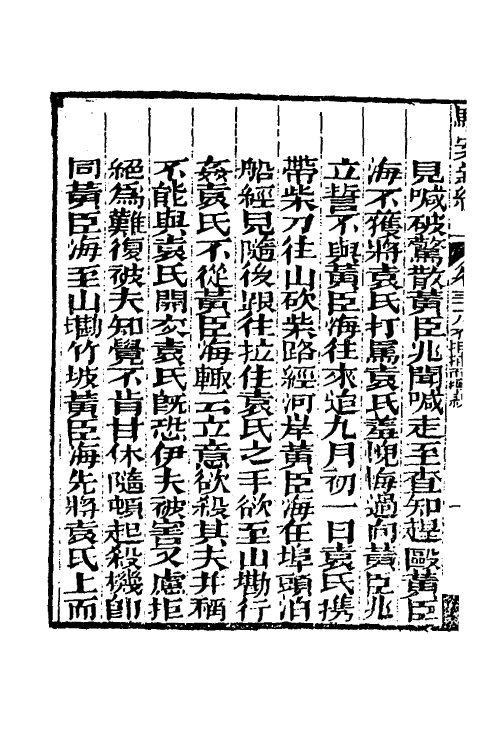 見喊破驚散黃臣兆聞喊走至查知趕毆黃臣
海不獲將袁氏打罵袁氏羞愧悔過向黃臣兆
立誓不與黃臣海往來迨九月初一日袁氏携
帶柴刀往山砍柴路經河岸黃臣海在埠頭泊
船經見隨後跟往拉住袁氏之手欲至山坳行
姦袁氏不從黃臣海輙云立意欲殺其夫并稱
不能與袁氏開交袁氏旣恐伊夫被害又慮拒
絕爲難復被夫知覺不肯甘休隨頓起殺機卽
同黃臣海至山坳竹坡黃臣海先將袁氏上而